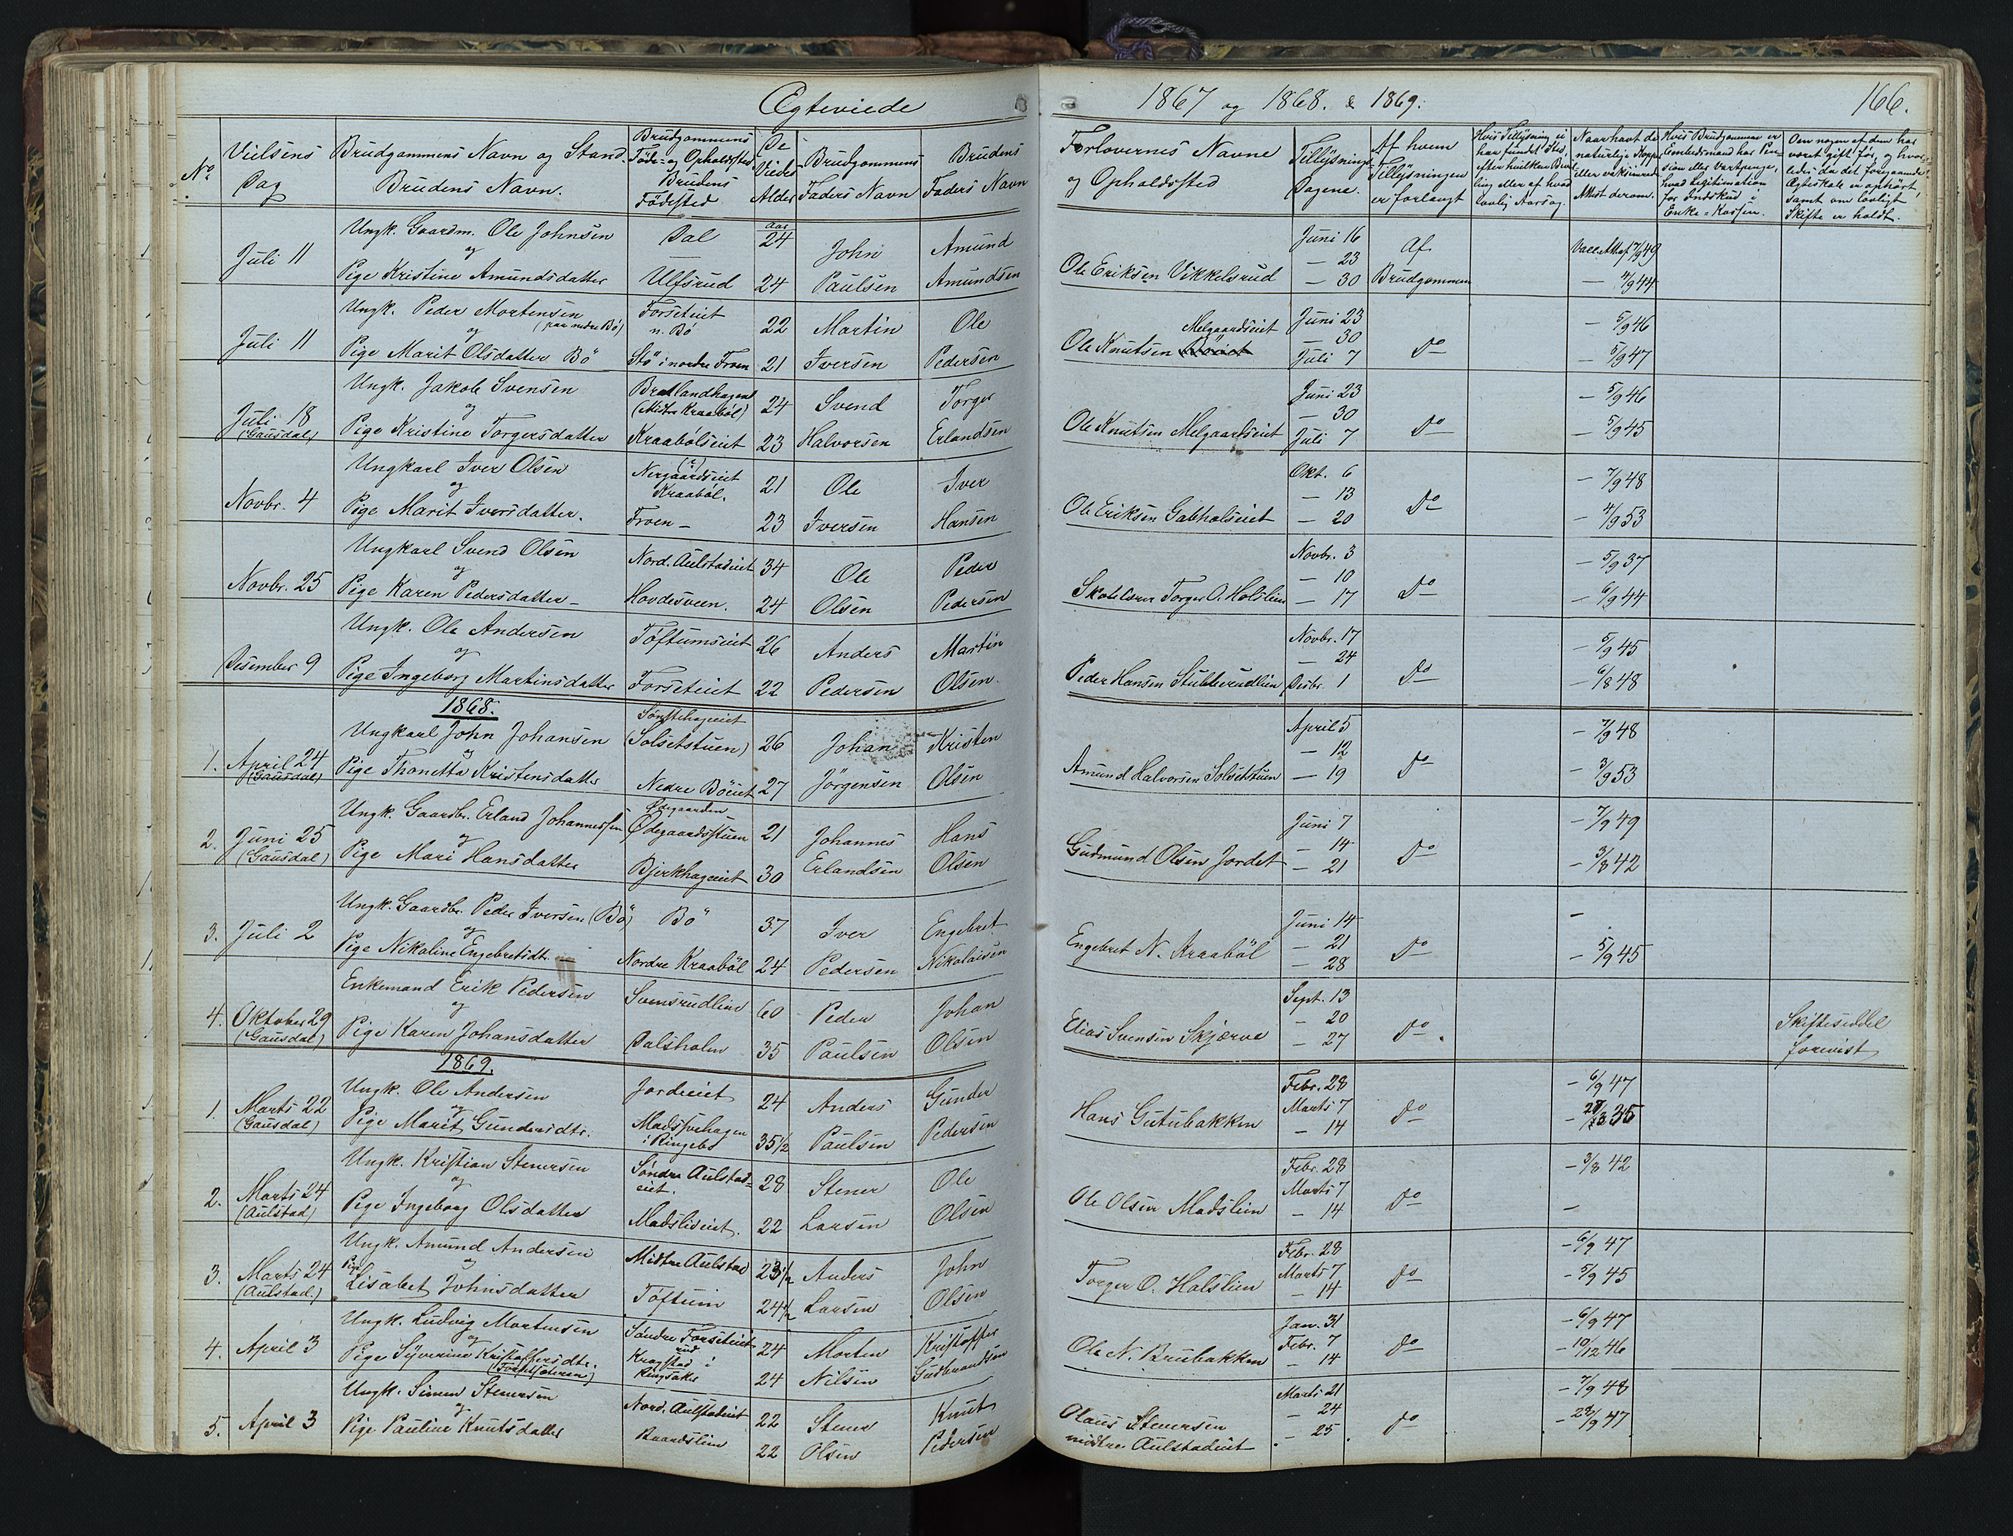 Ægteviede 1867 og 1868. & 1869. 166.
No | Vielsens Dag | Brudgommens Navn og Stand. Brudens Navn. | Brudgommens Føde- og Opholdsted Brudens Fødested | De Viedes Alder | Brudgommens Faders Navn | Brudens Faders Navn | Forlovernes Navne og Opholdsted | Tillysnings Dagene. | Af hvem Tillysningen er forlangt | Hvis Tillysning ei har fundet Sted, efter hvilken Bevilling eller af hvad lovlig Aarsag. | Naar havt de naturlige Kopper eller vaksinerede Attest derom. | Hvis Brudgommene er Embedsmand har Pension eller Vartpenge, hvad Legitimation for Indskud i Enke-Kassen. | Om nogen af dem har været gift før, og hvorledes da det foregaaende Ægteskab er ophørt, samt om lovligt Skifte er holdt.
Juli 11 | Ungk. Gaardm. Ole Johnsen | Dal | Aar 24 | John | Amund | Ole Eriksen Vikkelsrud | Juni 16 | Af | 7/9 49
og | — 23
Pige Kristine Amundsdatter | Ulfsrud | 24 | Paulsen | Amundsen | — 30 | Brudgommen | — 4/9 44
Juli 11 | Ungk. Peder Mortensen | Forseteiet | 22 | Martin | Ole | Ole Knutsen Melgaardseiet | Juni 23 | Do | — 5/9 46
og (paa nedre Bö) | n. Bö | — 30
Pige Marit Olsdatter Bö | Stö i nordre Froen | 21 | Iversen | Pedersen | Juli 7 | — 5/9 47
Juli 18 (Gausdal) | Ungk. Jakob Svensen | (Midtre Kraaböl) | 24 | Svend | Torger | Ole Knutsen Melgaardseiet | Juni 23 | Do | — 5/9 46
og | — 30
Pige Kristine Torgersdatter | Kraabölseiet | 23 | Halvorsen | Erlandsen | Juli 7 | — 5/9 45
Novbr. 4 | Ungkarl Iver Olsen | Nergaardseiet Kraaböl. | 21 | Ole | Iver | Ole Eriksen Gabholseiet | Okt. 6 | Do | — 7/9 48
og | — 13
Pige Marit Iversdatter. | Froen — | 23 | Iversen | Hansen | — 20 | — 4/9 53
Novbr. 25 | Ungkarl Svend Olsen | Nord. Aulstadeiet | 34 | Ole | Peder | Skolelærer Torger O. Holslien | Novbr. 3 | Do | — 5/9 37
og | — 10
Pige Karen Pedersdatter — | Hovdesveen. | 24 | Olsen | Pedersen | — 17 | — 6/9 44
Desember 9 | Ungk. Ole Andersen | Toftumseiet | 26 | Anders | Martin | Peder Hansen Stubberudlien | Novbr. 17 | Do | — 5/9 45
og | — 24
Pige Ingeborg Martinsdatter | Forseteiet | 22 | Pedersen | Olsen. | Desbr. 1 | — 6/8 48
1868.
1. | April 24 (Gausdal) | Ungkarl John Johansen | (Solsetstuen) | 26 | Johan | Kristen | Amund Halvorsen Solsetstuen | April 5 | Do | — 7/9 48
og | — 12
Pige Thonetta Kristensdatter | Nedre Böeiet | 27 | Jörgensen | Olsen | — 19 | — 3/9 53
2. | Juni 25 (Gausdal) | Ungk. Gaardbr. Erland Johannessen | Ødegaarden Ødegaardsstuen | 21 | Johannes | Hans | Gudmund Olsen Jordet | Juni 7 | Do | — 7/9 49
og | — 14
Pige Mari Hansdatter | Bjerkhageeiet | 30 | Erlandsen | Olsen | — 21 | — 3/8 42
3. | Juli 2 | Ungk. Gaardbr. Peder Iversen (Bö) | Bö | 37 | Iver | Engebret | Engebret N. Kraaböl | Juni 14 | Do | —
og | — 21
Pige Nikoline Engebretsdt. — | Nordre Kraaböl | 24 | Pedersen | Nikolaisen | — 28 | — 5/9 45
4. | Oktober 29 (Gausdal) | Enkemand Erik Pedersen | Svensrudlien | 60 | Peder | Johan | Elias Svensen Skjærve | Sept. 13 | Do | Skiftesiddel forevist
og | — 20
Pige Karen Johansdatter | Dalsholm | 35 | Paulsen | Olsen | — 27
1869.
1. | Marts 22 (Gausdal) | Ungk. Ole Andersen | Jordeeiet | 24 | Anders | Gunder | Hans Gutubakken | Febr. 28 | Do | — 6/9 47
og | Marts 7
Pige Marit Gundersdtr. | i Ringebo | 35 1/2 | Paulsen | Pedersen | — 14
2. | Marts 24 (Aulstad) | Ungk. Kristian Stenersen | Søndre Aulstad=eiet. | 28 | Stener | Ole | Ole Olsen Madslien | Febr. 28 | Do | — 3/8 42
og | Marts 7
Pige Ingeborg Olsdatter | Madslieeiet | 22 | Larsen | Olsen | — 14 | —
3. | Marts 24 (Aulstad.) | Ungk. Amund Andersen | Midtre Aulstad | 23 1/2 | Anders | John | Torger O. Holslien | Febr. 28 | Do | — 6/9 47
og | Marts 7
Pige Lisabet Johnsdatter | Toftum | 24 1/2 | Larsen | Olsen | — 14 | — 5/9 45
4. | April 3 | Ungk. Ludvig Mortensen | Søndre Forseteiet | 24 | Morten | Kristoffer | Ole N. Brubakken | Jan. 31 | Do | — 6/9 47
og | Febr. 7
Pige Syverine Kristoffersdtr. | Ringsaker | 24 | Nilsen | Gudbrandsen | — 14 | — 10/12 46
5. | April 3 | Ungk. Simen Stenersen | Nord. Aulstadeiet | 22 | Stener | Knut | Olaus Stenersen | Marts 21 | Do | — 7/9 48
og | — 24
Pige Pauline Knutsdatter | Baardslien | 22 | Olsen | Pedersen | midtre Aulstadeiet | — 25 | — 28/9 47